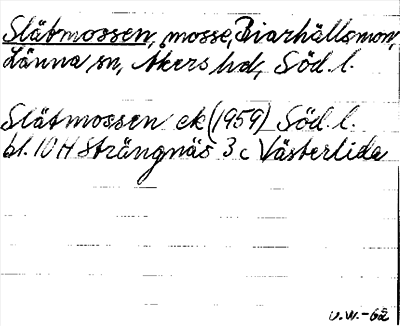 Slätmossen, mosse, Biarhällsmon,
Länna sn, Åkers hd, Söd. l.
Slätmossen ek (1959) Söd. l.
bl. 10 H Strängnäs 3 c Västerlida
U.W.-62